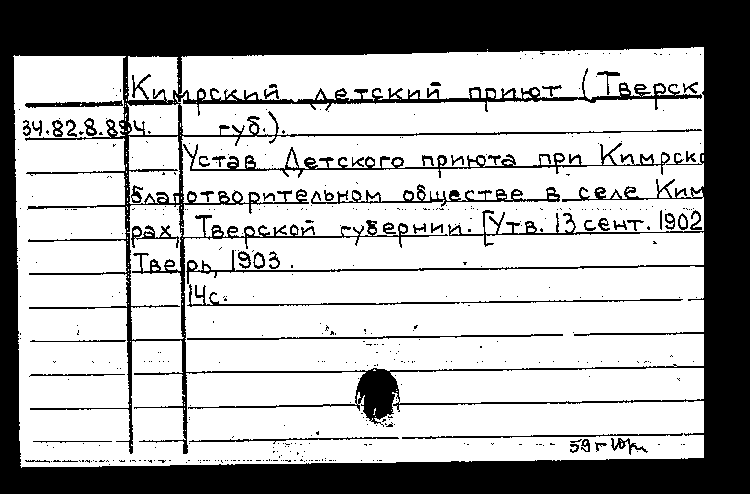 Кимрский детский приют (Тверск.
34.82.8.894. губ.).
Устав Детского приюта при Кимрско
благотворительном обществе в селе Ким
рах, Тверской губернии. [Утв. 13 сент. 1902
Тверь, 1903.
14с.
59г